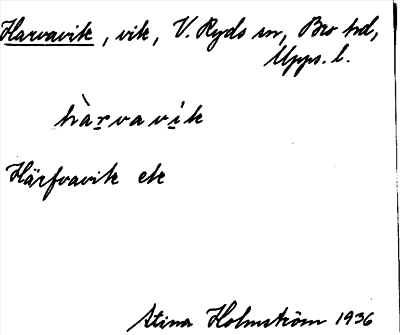 Harvavik, vik, V. Ryds sn, Bro hd,
Upps. l.
hàrvavik
Härfvavik ek
Stina Holmström 1936